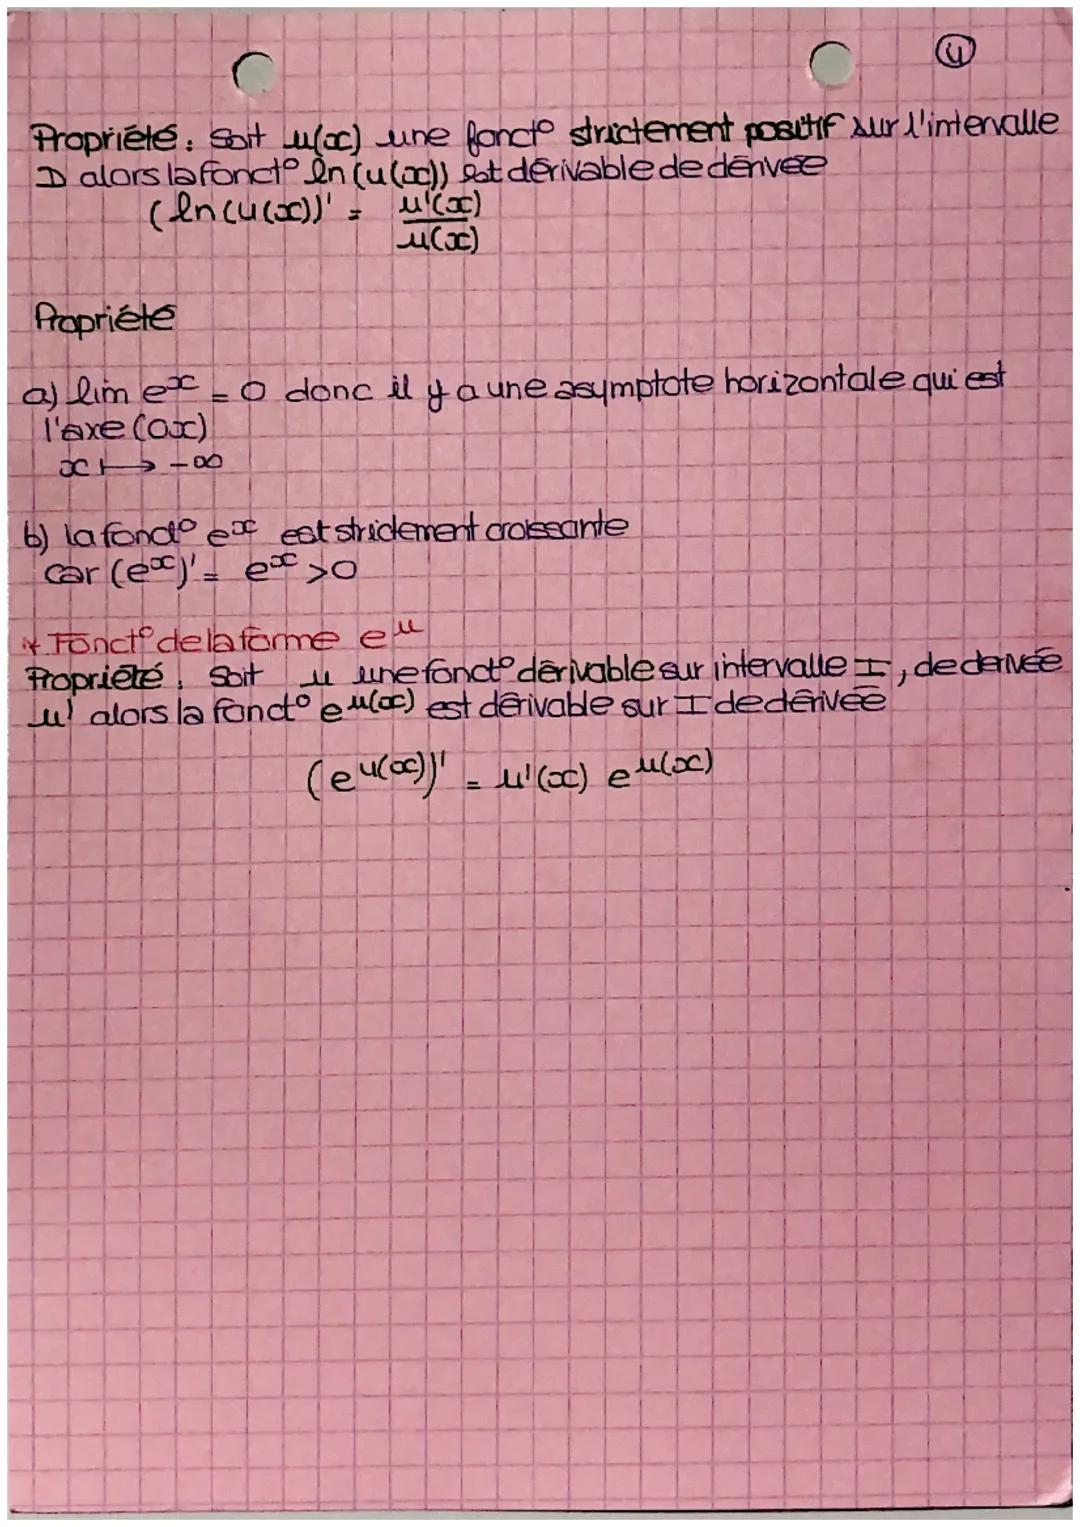 ④
Propriété : Soit u(x) une fonct° strictement positif sur l'intervalle
D alors la fonct° ln(u(x)) est dérivable de dérivée
(ln(u(x))' = u'(x)/u(x)
Propriété
a) lim eˣ = 0 donc il y a une asymptote horizontale qui est
l'axe (ox)
x ↦ -∞
b) la fonct° eˣ est strictement croissante
car (eˣ)' = eˣ >0
* Fonct° de la forme eᵘ
Propriété : Soit u une fonct° dérivable sur intervalle I, de dérivée
u' alors la fonct° e^u(x) est dérivable sur I de dérivée
(e^u(x))' = u'(x) e^u(x)